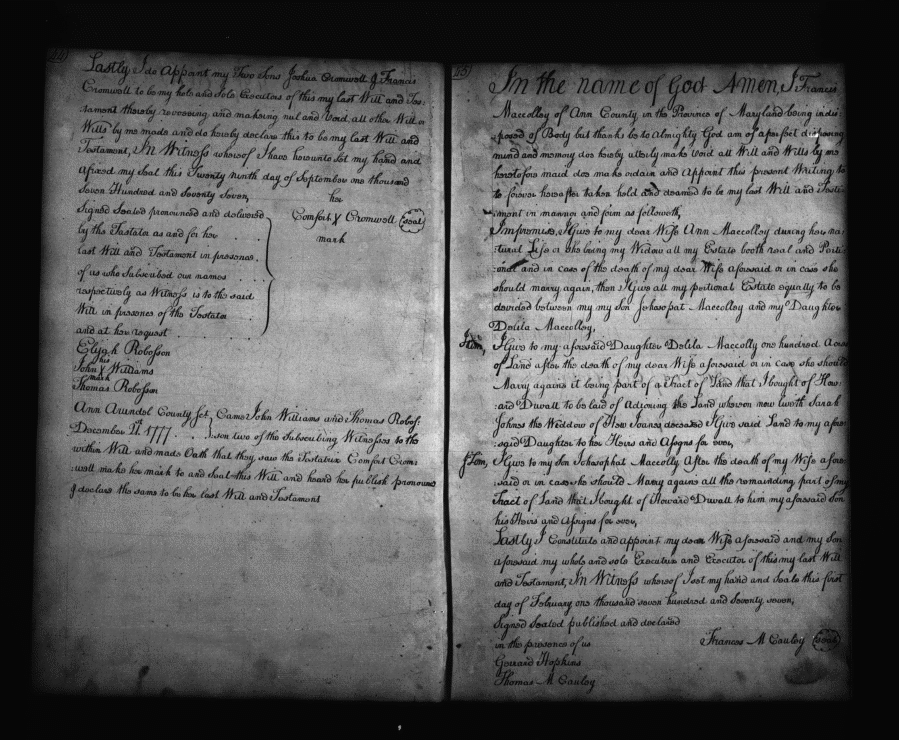 24
Lastly I do Appoint my Two Sons Joshua Cromwell & Francis
Cromwell to be my hole and Sole Executors of this my last Will and Tes-
tament thereby revoceing and makeing nul and Void, all other Will or
Wills by me made and do hereby declare this to be my last Will and
Testament, In Witness whereof I have hereunto Set my hand and
Afixed my Seal this Twenty ninth day of September one thousand
Seven Hundred and Seventy Seven,
her
Comfort X Cromwell Seal
mark
Signed Sealed pronounced and delivered
by the Testator as and for her
last Will and Testament in presence
of us who Subscribed our names
respectively as Witness is to the said
Will in presence of the Testator
and at her request
Elijah Robosson
his
John X Williams
mark
Thomas Robosson
Ann Arundel County Sct Came John Williams and Thomas Robos-
December 11. 1777 son two of the Subscribing Witnesses to the
within Will and made Oath that they saw the Testatrix Comfort Crom-
well make her mark to and Seal this Will and heard her publish pronounce
& declare the same to be her last Will and Testament
25
In the name of God Amen, I Francis
Maccolloy of Ann County in the Province of Maryland being indis-
posed of Body but thanks be to Almighty God am of a perfect disposing
mind and memory do hereby utterly make void all Will and Wills by me
heretofore maid does make ordain and Appoint this present Writing to
to forever hereafter taken held and deamed to be my last Will and Testi-
ment in manner and form as followeth,
Impremis, I Give to my dear Wife Ann Maccolloy during her na-
tural Life or she being my Widow all my Estate booth real and Perti-
onal and in case of the death of my dear Wife aforesaid or in case she
should marry again, then I Give all my pertional Estate equally to be
devided between my my Son Johosopat Maccolloy and my Daughter
Dolila Maccolloy,
Item, I Give to my aforesaid Daughter Dolila Maccolly one hundred Acres
of Land after the death of my dear Wife aforesaid or in case she should
Marry againe it being part of a Tract of Land that I bought of How-
ard Duvall to be laid of Adjoning the Land whereon now liveth Sarah
Johnes the Widdow of deceased I Give said Land to my afore-
said Daughter to her Heirs and Assigns for ever,
Item, I Give to my Son Johosophat Maccolly After the death of my Wife afore-
said or in case she should Marry againe all the remainding part of my
Tract of Land that I bought of Howard Duvall to him my aforesaid Son
his Heirs and Assigns for ever,
Lastly I Constitute and appoint my dear Wife aforesaid and my Son
aforesaid my whole and sole Executrix and Executor of this my last Will
and Testament, In Witness whereof I set my hand and Seale this first
day of February one thousand seven hundred and Seventy seven,
Signed Sealed published and declared
in the presence of us Frances M Cauley Seal
Gerrard Hopkins
Thomas M Cauley